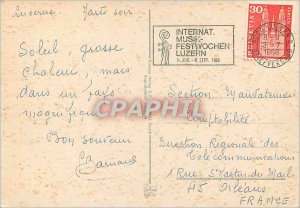 Lucerne Jarti soir
INTERNAT.
MUSIK-
FESTWOCHEN
LUZERN
14. AUG. - 8. SEPT. 1968
HELVETIA
30
1968
Soleil, grosse
chaleur, mais
dans un pays
magnifique
Bon souvenir
Barnaud
CPAPHIL
Section Mandatement
Comptabilité
Direction Régionale des
Télécommunications
1 Rue St Martin du Mail
45 Orléans
FRANCE